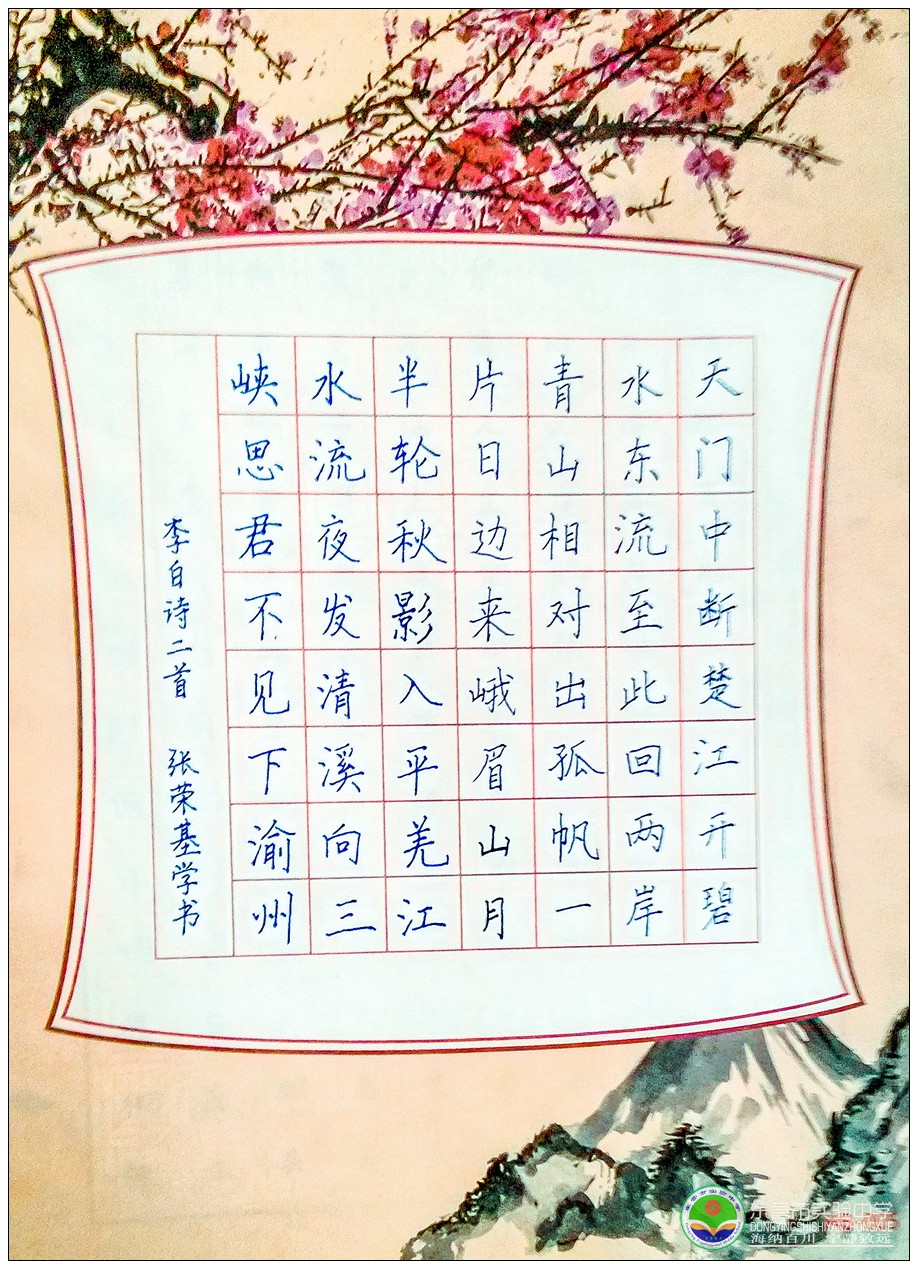 天门中断楚江开碧
水东流至此回两岸
青山相对出孤帆一
片日边来峨眉山月
半轮秋影入平羌江
水流夜发清溪向三
峡思君不见下渝州
李白诗二首 张荣基学书
东营市实验中学
DONGYINGSHISHIYANZHONGXUE
海纳百川 宁静致远